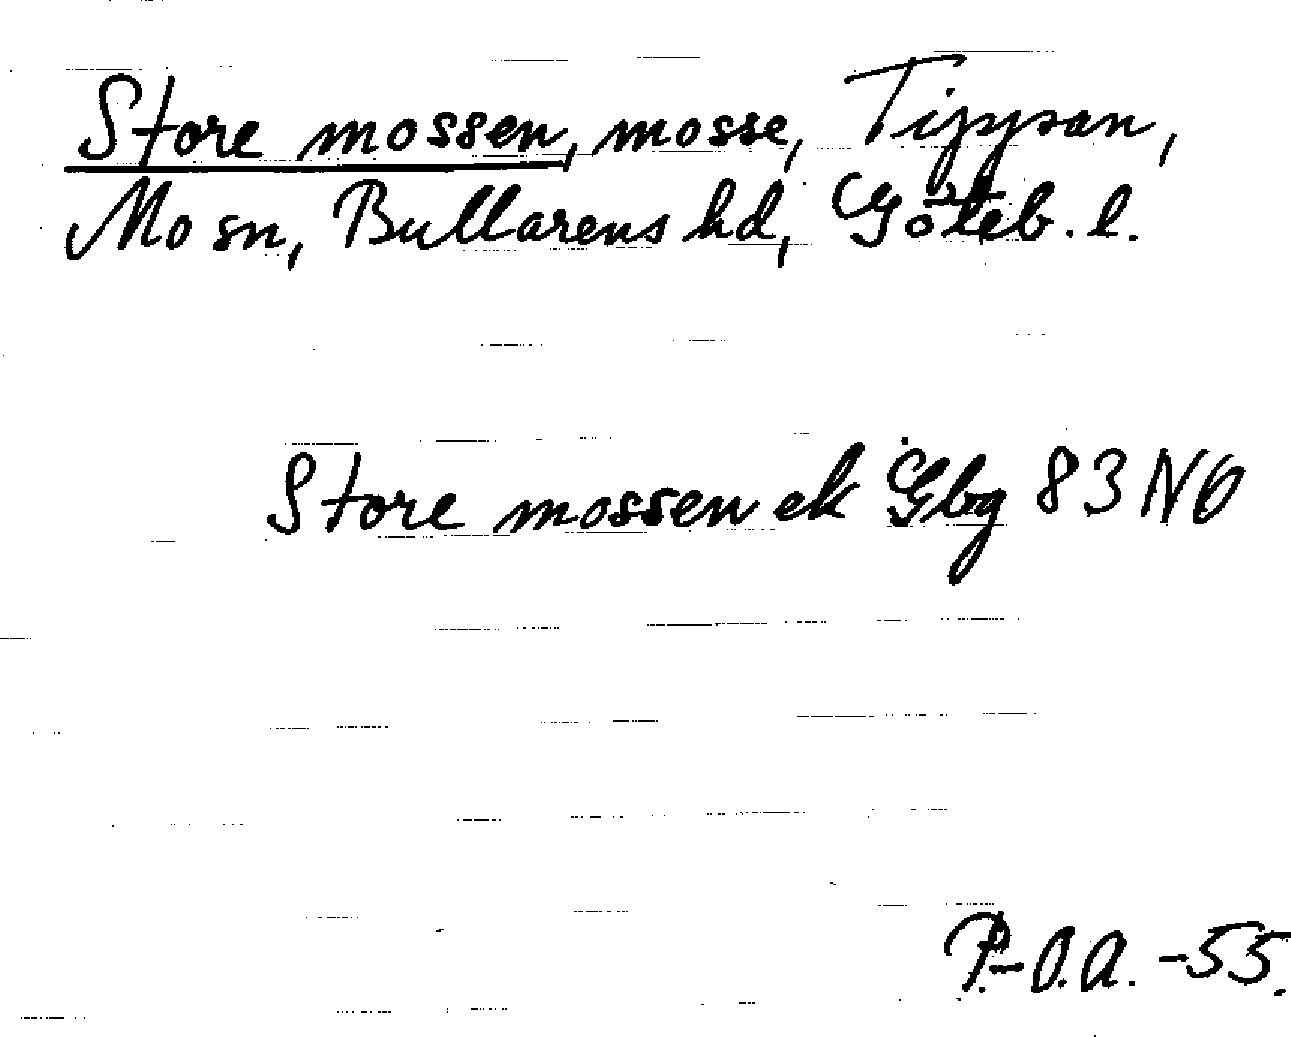 Store mossen, mosse, Tippan,
Mo sn, Bullarens hd, Göteb. l.
Store mossen ek Gbg 83 NO
P.-O.A. -55.